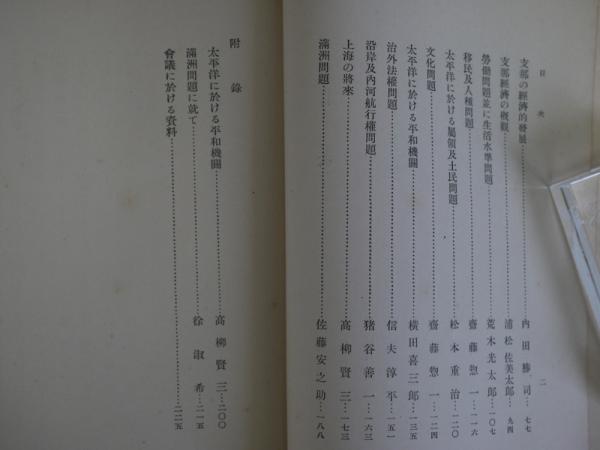 目次
二
支那の經濟的發展……………內田勝司…七七
支那經濟の槪觀……………浦松佐美太郎…九四
勞働問題並に生活水準問題……………荒木光太郎…一〇七
移民及人種問題……………齋藤惣一…一一六
太平洋に於ける屬領及土民問題……………松本重治…一二〇
文化問題……………齋藤惣一…一二四
太平洋に於ける平和機關……………橫田喜三郎…一三五
治外法權問題……………信夫淳平…一五一
沿岸及內河航行權問題……………猪谷善一…一六三
上海の將來……………高柳賢三…一七三
滿洲問題……………佐藤安之助…一八八
附錄
太平洋に於ける平和機關……………高柳賢三…二〇〇
滿洲問題に就て……………徐淑希…二一五
會議に於ける資料……………二二五